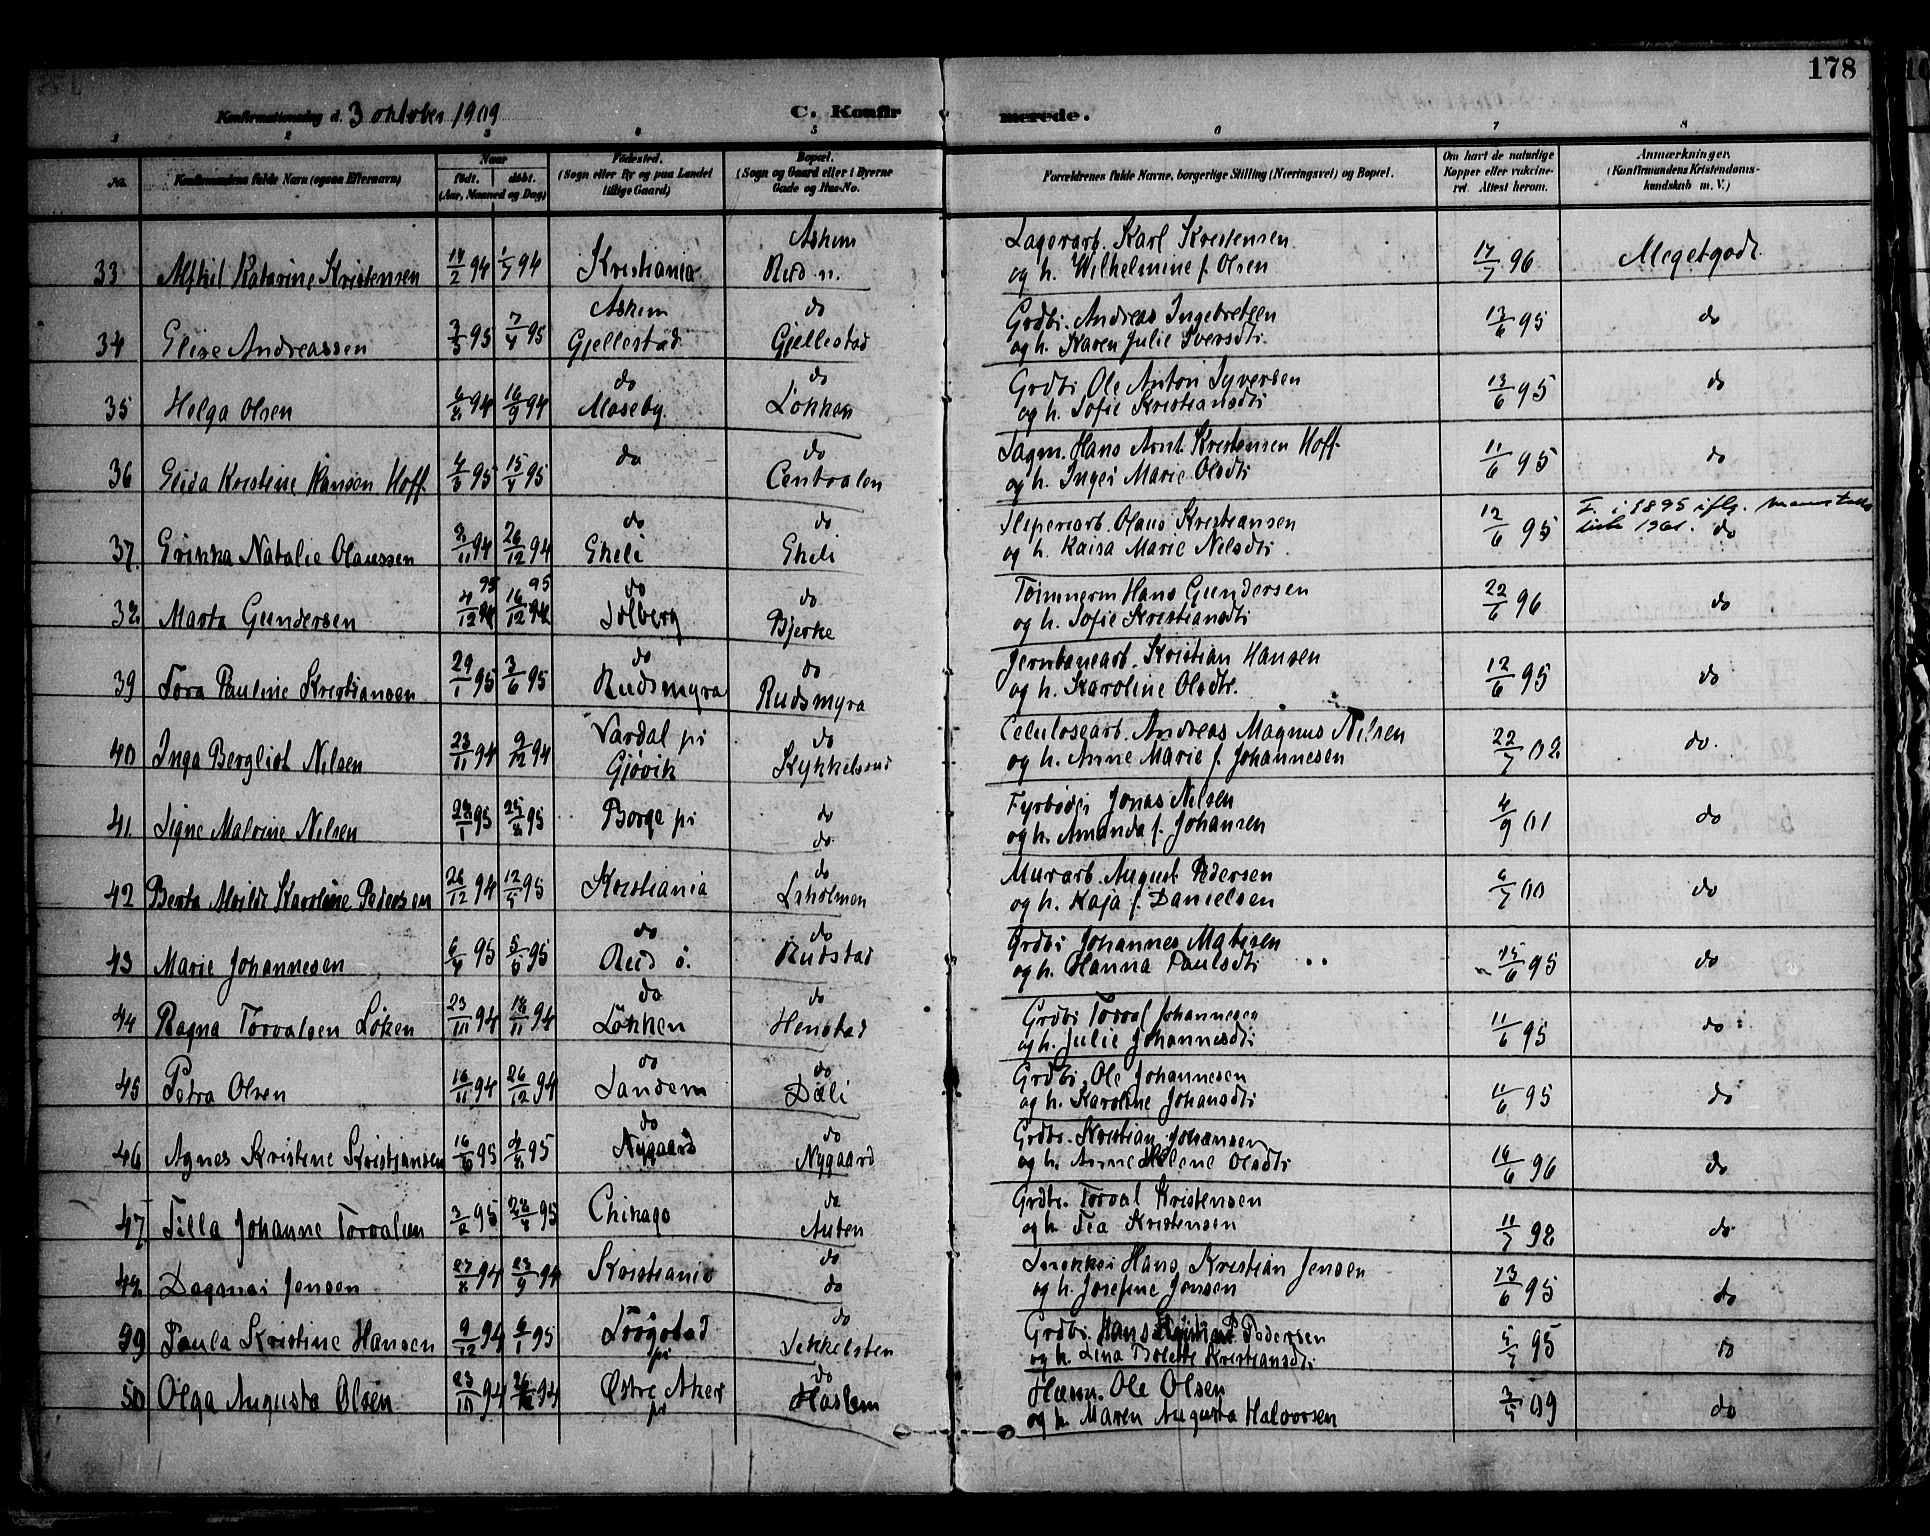 178
Konfirmationsdag d. 3 oktober 1909 C. Konfirmerede.
1 2 3 4 5 6 7 8
No. Konfirmandens fulde Navn (ogsaa Efternavn) Naar født. døbt. (Aar, Maaned og Dag) Fødested. (Sogn eller By og paa Landet tillige Gaard) Bopæl. (Sogn og Gaard eller i Byerne Gade og Hus-No. Forældrenes fulde Navne, borgerlige Stilling (Næringsvei) og Bopæl. Om havt de naturlige Kopper eller vakcineret. Attest herom. Anmærkninger. (Konfirmandens Kristendomskundskab m. V.)
Askim Lagerarb. Karl Kristensen
33 Alfhil Katarine Kristensen 14/2 94 1/7 94 Kristiania Rud n. og h. Wilhelmine f. Olsen 17/7 96 Megetgodt.
Askim do Grdbr. Andreas Ingebretsen
34 Elise Andreassen 3/3 95 7/4 95 Gjellestad Gjellestad og h. Karen Julie Iversdtr. 13/6 95 do
do do Grdbr Ole Anton Syversen
35 Helga Olsen 6/8 94 16/9 94 Moseby Løkken og h. Sofie Kristiansdtr 13/6 95 do
do do Sagm. Hans Arnt Kristensen Hoff
36 Elida Kristine Hansen Hoff 4/3 95 15/4 95 Centralen og h. Inger Marie Olsdtr 11/6 95 do
do do Sliperiarb. Olaus Kristiansen F. i 1895 iflg. manntalls
37. Erikka Natalie Olaussen 3/11 94 26/12 94 Eheli Eheli og h. Kaisa Marie Nilsdtr 12/6 95 liste 1961. do
95 95 do do Tømmerm Hans Gundersen
38 Marta Gundersen 4/12 94 16/12 94 Solberg Bjerke og h. Sofie Kristiansdtr 22/6 96 do
do do Jernbanearb. Kristian Hansen
39 Tora Pauline Kristiansen 29/1 95 3/6 95 Rudsmyra Rudsmyra og h. Karoline Olsdtr. 12/6 95 do
Vardal pr do Celulosearb. Andreas Magnus Nilsen
40 Inga Bergliot Nilsen 23/11 94 9/12 94 Gjøvik Kykkelsrud og h. Anne Marie f. Johannesen 22/7 02 do.
Borge pr do Fyrbøder Jonas Nilsen
41 Signe Malvine Nilsen 22/1 95 25/2 95 do og h. Amanda f. Johansen 4/9 01 do
do Murarb. August Pedersen
42 Berta Moilde Karoline Pedersen 26/12 94 12/5 95 Kristiania Løholmen og h. Kaja f. Danielsen 6/7 00 do
do do Grdbr Johannes Matisen
43 Marie Johannesen 6/4 95 5/6 95 Rud ø. Rudstad og h. Hanna Paulsdtr 15/6 95 do
do do Grdbr Torval Johannesen
44 Ragna Torvalsen Løken 23/10 94 18/11 94 Løkken Henstad og h. Julie Johannesdtr 11/6 95 do
do do Grdbr. Ole Johannesen
45 Petra Olsen 16/11 94 26/12 94 Sandem Dæli og h. Karoline Johansdtr 11/6 95 do
do do Grdbr. Kristian Johansen
46 Agnes Kristine Kristiansen 16/6 95 4/8 95 Nygaard Nygaard og h. Anne Helene Olsdtr 16/6 96 do
do Grdbr. Torval Kristensen
47 Tilla Johanne Torvalsen 3/2 95 28/4 95 Chikago Auten og h. Tea Kristensen 11/7 98 do
do Snekker Hans Kristian Jensen
48 Dagmar Jensen 27/8 94 23/9 94 Kristiania do og h. Josefine Jensen 13/6 95 do
do Grdbr Hans Pedersen
49 Paula Kristine Hansen 9/12 94 6/1 95 Trøgstad pr Sekkelsten og h. Lina Bolette Kristiansdtr 5/7 95 do
do Ole Olsen
50 Olga Augusta Olsen 23/10 94 26/12 94 Østre Aker pr Haslem og h. Maren Augusta Halvorsen 3/5 09 do